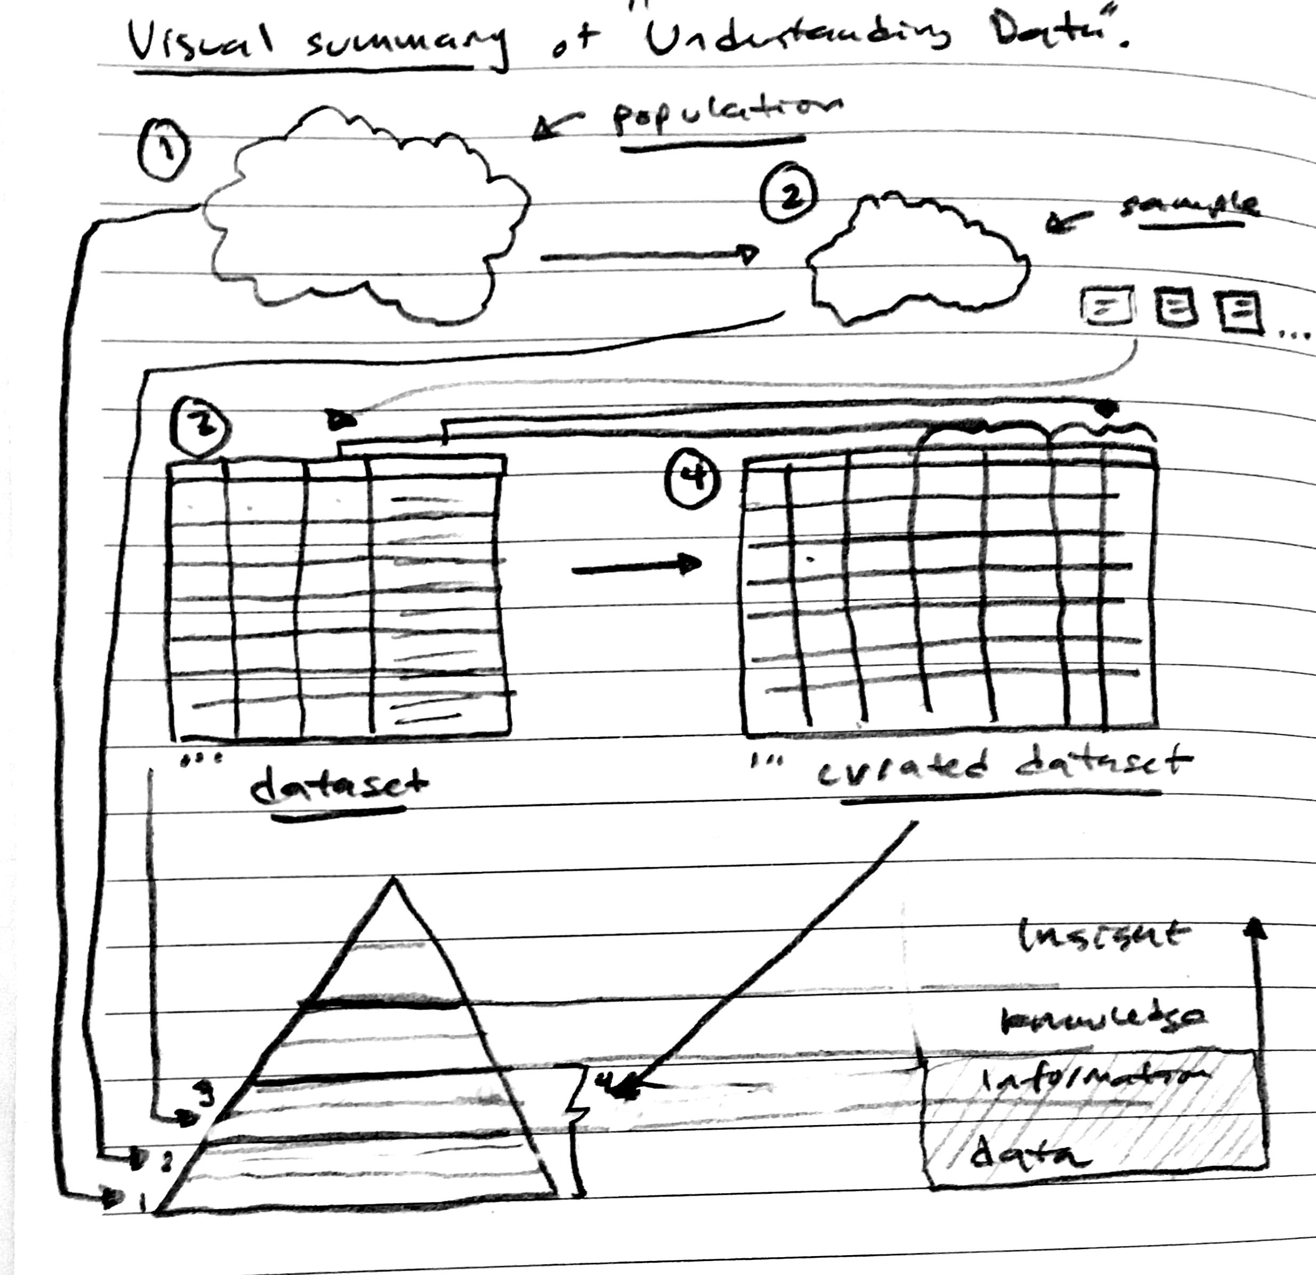 Visual summary of "Understanding Data".
1
population
2
sample
...
2
4
...
dataset
...
curated dataset
Insight
knowledge
information
data
3
4
2
1